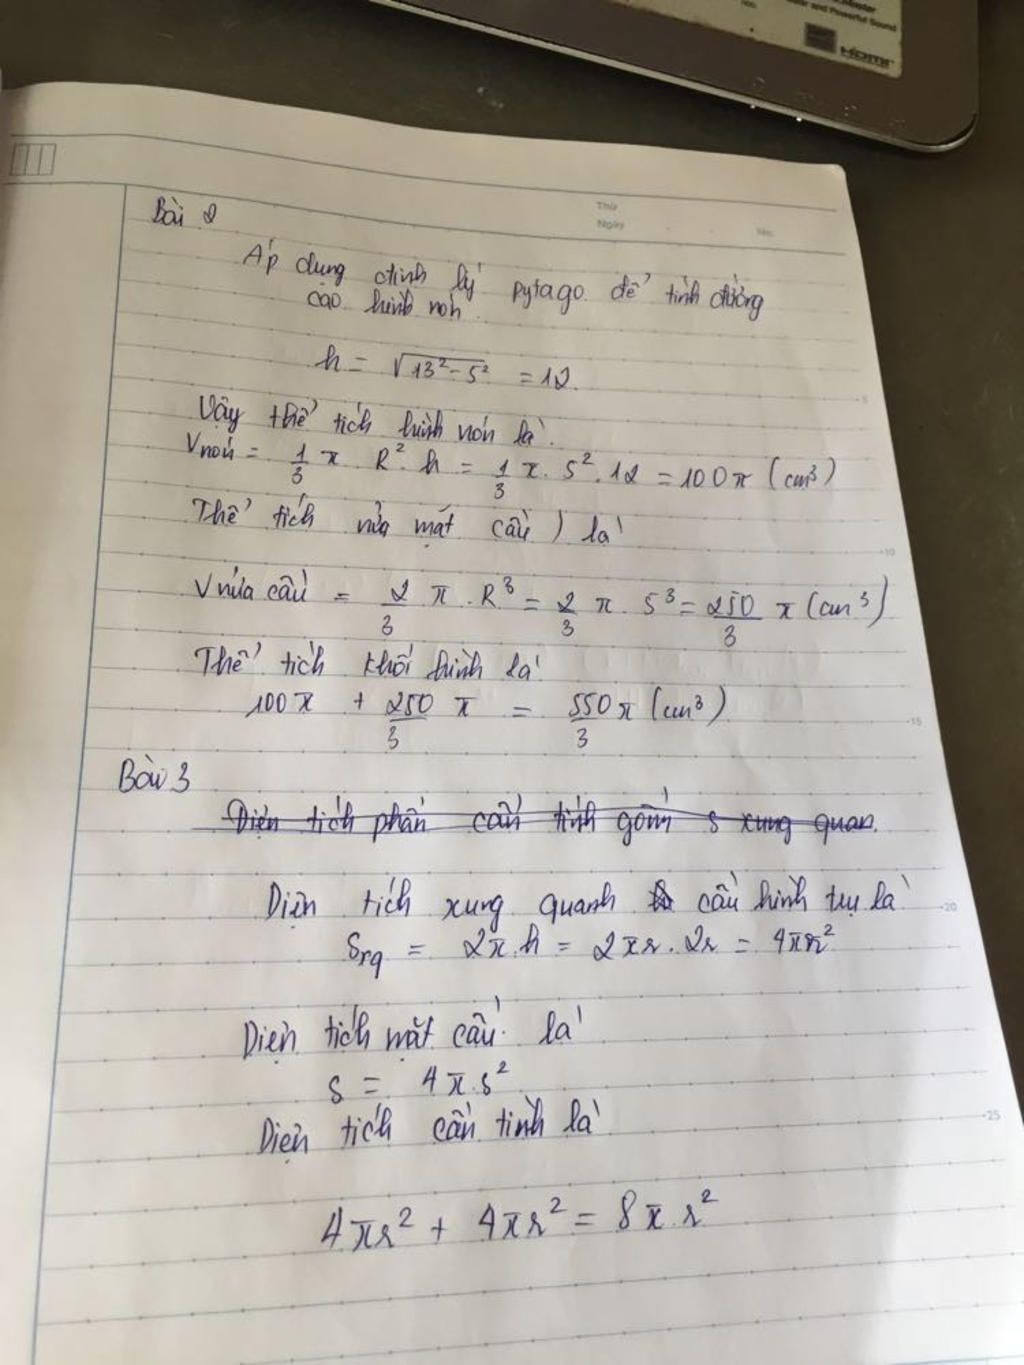 and Powerful Sound
HDMI
Thứ
Ngày
No.
Bài 2
Áp dụng định lý pytago để tính đường
cao hình nón.
h = √13² - 5² = 12.
Vậy thể tích hình nón là.
Vnón = 1/3 π R². h = 1/3 π. 5². 12 = 100π (cm³)
Thể tích nửa mặt cầu ) là
V nửa cầu = 2/3 π . R³ = 2/3 π . 5³ = 250/3 π (cm³)
Thể tích khối hình là
100π + 250/3 π = 550/3 π (cm³)
Bài 3
Diện tích phần cần tính gồm s xung quan.
Diện tích xung quanh cầu hình trụ là
Sxq = 2π.h = 2πr. 2r = 4πr²
Diện tích mặt cầu là
S = 4π.r²
Diện tích cần tính là
4πr² + 4πr² = 8π.r²
5
10
15
20
25